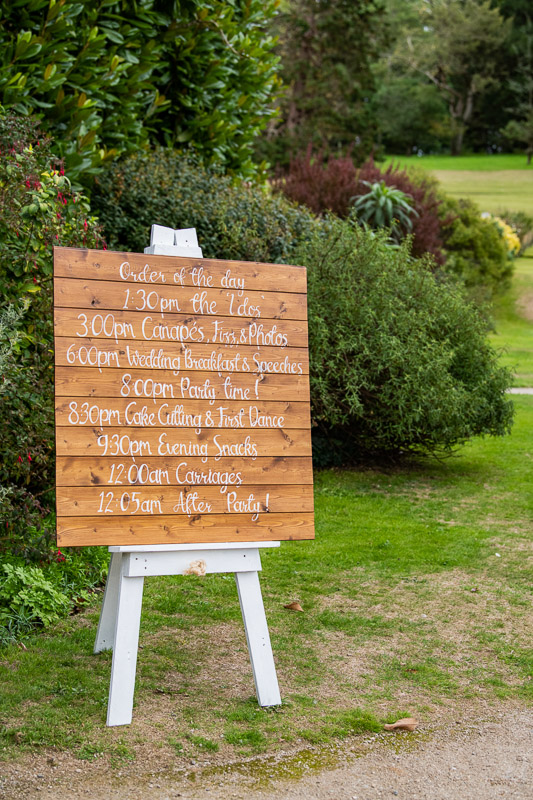 Order of the day
1:30pm the 'I dos'
3:00pm Canapés, Fizz & Photos
6:00pm Wedding Breakfast & Speeches
8:00pm Party time!
8:30pm Cake Cutting & First Dance
9:30pm Evening Snacks
12:00am Carriages
12:05am After Party!